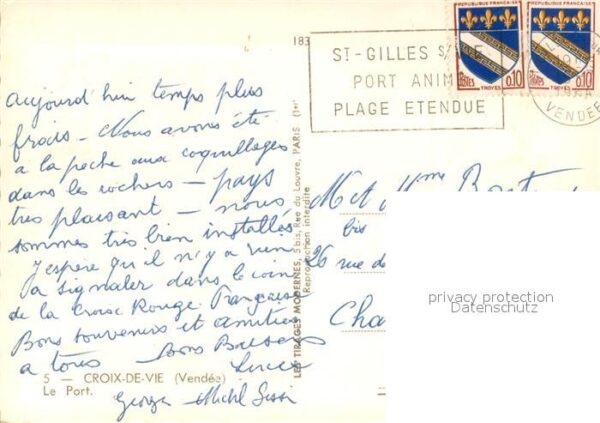 183
ST-GILLES S/VIE
PORT ANIMÉ
PLAGE ETENDUE
REPUBLIQUE FRANÇAISE
REPUBLIQUE FRANÇAISE
POSTES 0,10
POSTES 0,10
TROYES
TROYES
VENDEE
aujourd'hui temps plus
frais - Nous avons été
a la peche aux coquillages
dans les rochers - pays
tres plaisant - nous
sommes très bien installés
j'espère qu'il n'y a rien
a signaler dans le coin
de la Croix Rouge Française
Bons souvenirs et amitiés
a tous Bons Baisers
George Michel
5 — CROIX-DE-VIE (Vendée)
Le Port.
LES TIRAGES MODERNES, 5 bis, Rue du Louvre, PARIS (1er)
Reproduction interdite
M et Mme
bis
26 rue de
Cha
privacy protection
Datenschutz